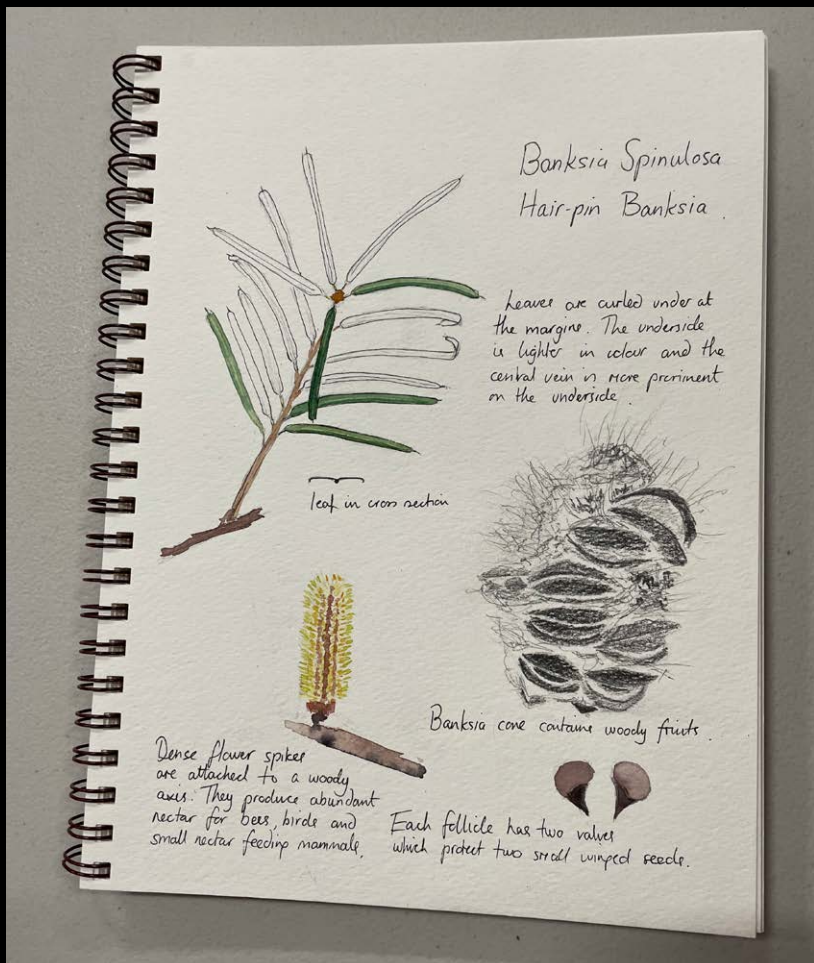 Banksia Spinulosa
Hair-pin Banksia
Leaves are curled under at
the margins. The underside
is lighter in colour and the
central vein is more prominent
on the underside.
leaf in cross section
Banksia cone contains woody fruits.
Dense flower spikes
are attached to a woody
axis. They produce abundant
nectar for bees, birds and
small nectar feeding mammals.
Each follicle has two valves
which protect two small winged seeds.